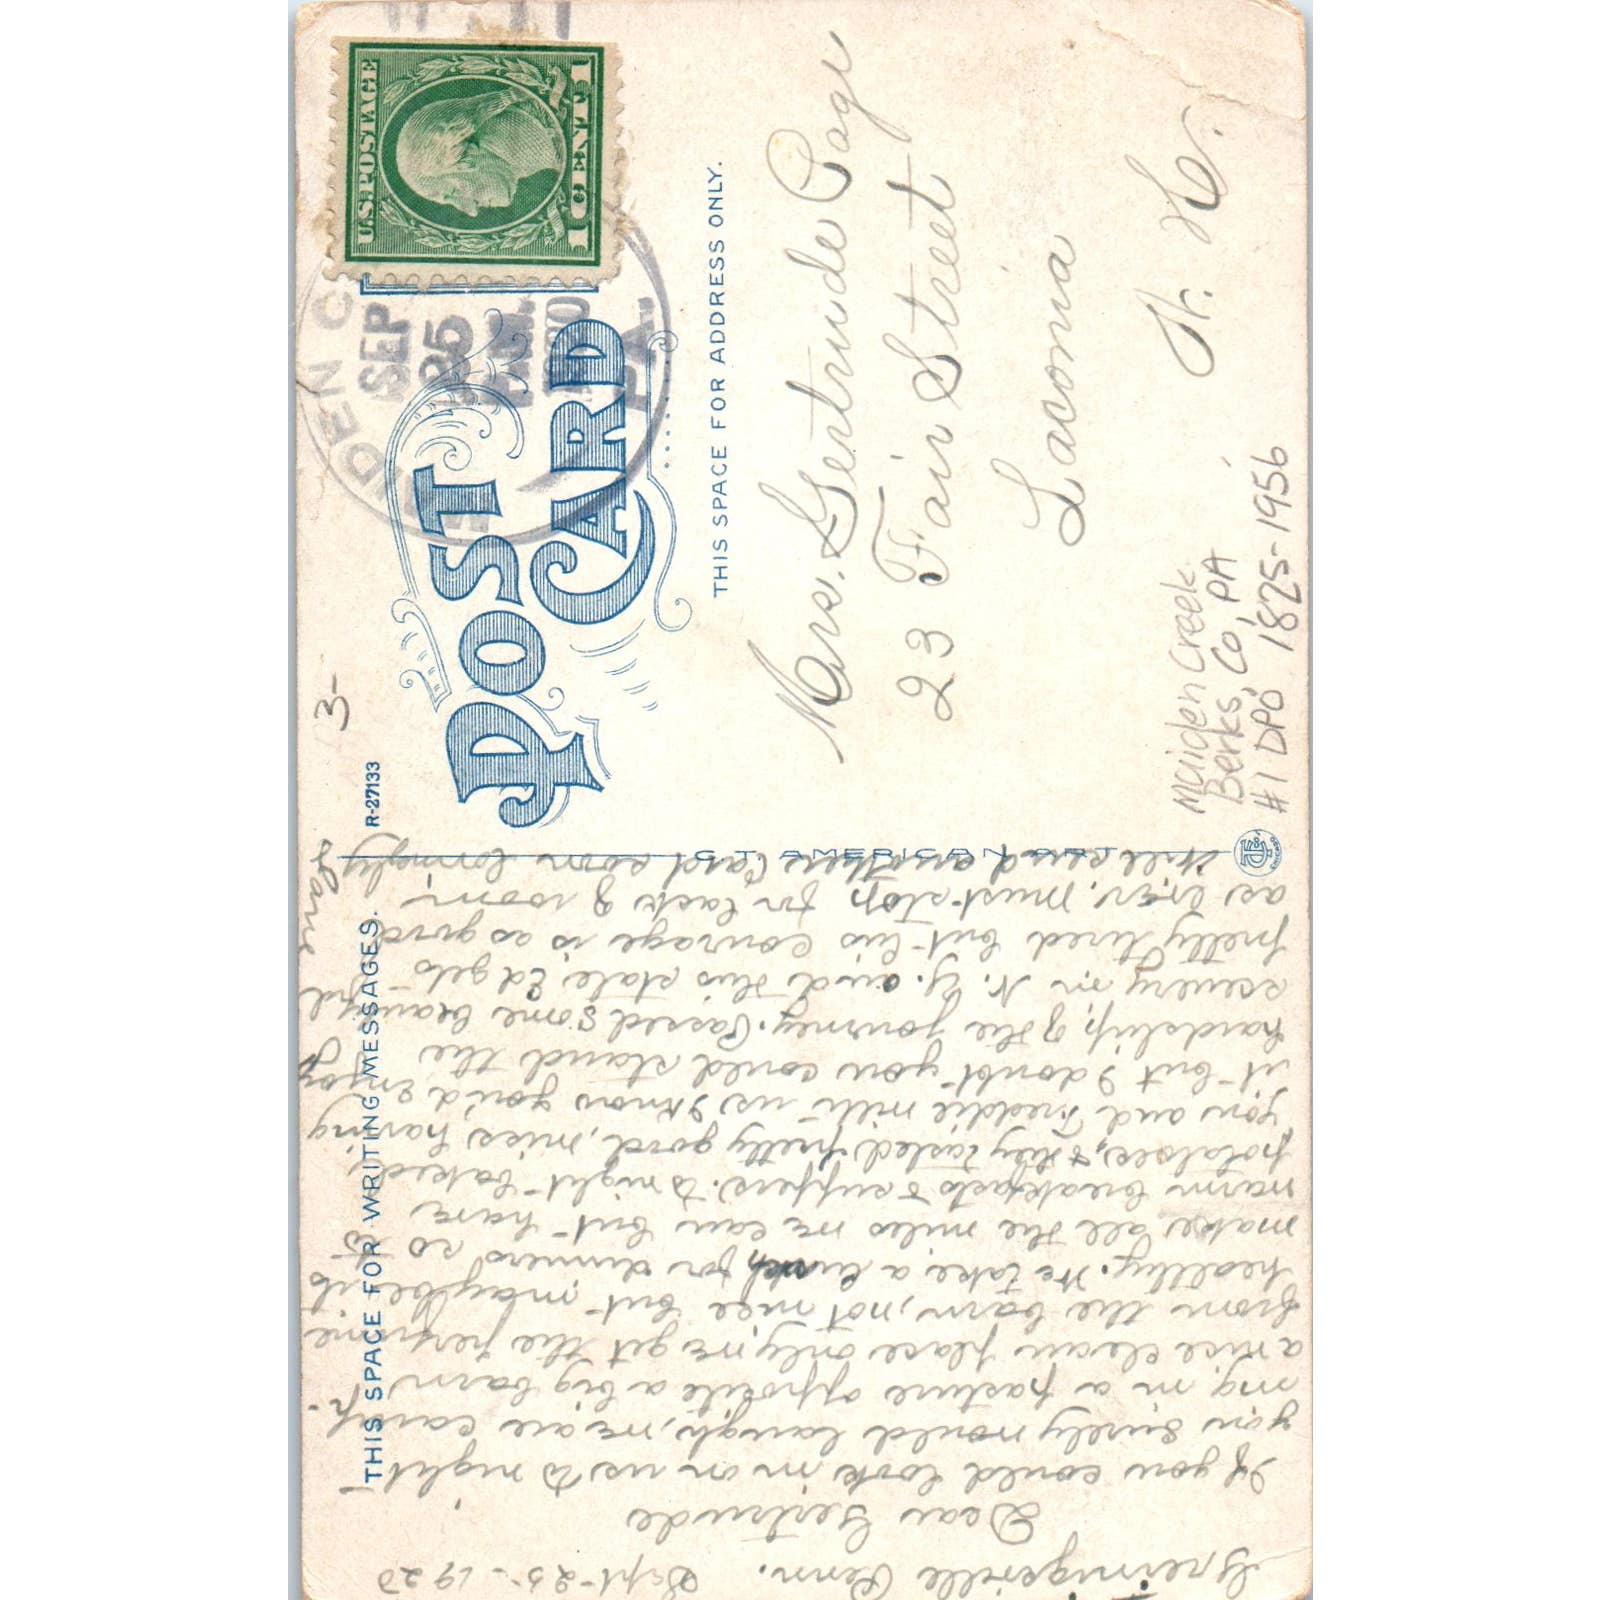 THIS SPACE FOR WRITING MESSAGES.
R-27133
3-
POST CARD
THIS SPACE FOR ADDRESS ONLY.
U.S. POSTAGE
1 CENT 1
DEN C
SEP
25
PA.
C.T. AMERICAN ART
CHICAGO
Mrs. Gertrude Page
23 Fair Street
Laconia
N. H.
Maiden Creek
Berks, Co, PA
#1 DPO 1825-1956
Penn. Sept-25-1920
Dear Gertrude
If you could look in on us to night
you surely would laugh, we are camp-
ing in a pasture opposite a big barn
a nice clean place only we get the perfume
from the barn, not nice but maybe its
healthy. We take a lunch for dinners so to
make all the miles we can but have
warm breakfasts & suppers. To night baked
potatoes, & they tasted pretty good, miss having
you and Freddie with us I know you'd enjoy
it but I doubt you could stand the
hardship of the journey. Passed some beautiful
scenery in N. Y. and this state. Ed gets
pretty tired but his courage is as good
as ever. Must stop for lack of room
Will send another card soon lovingly